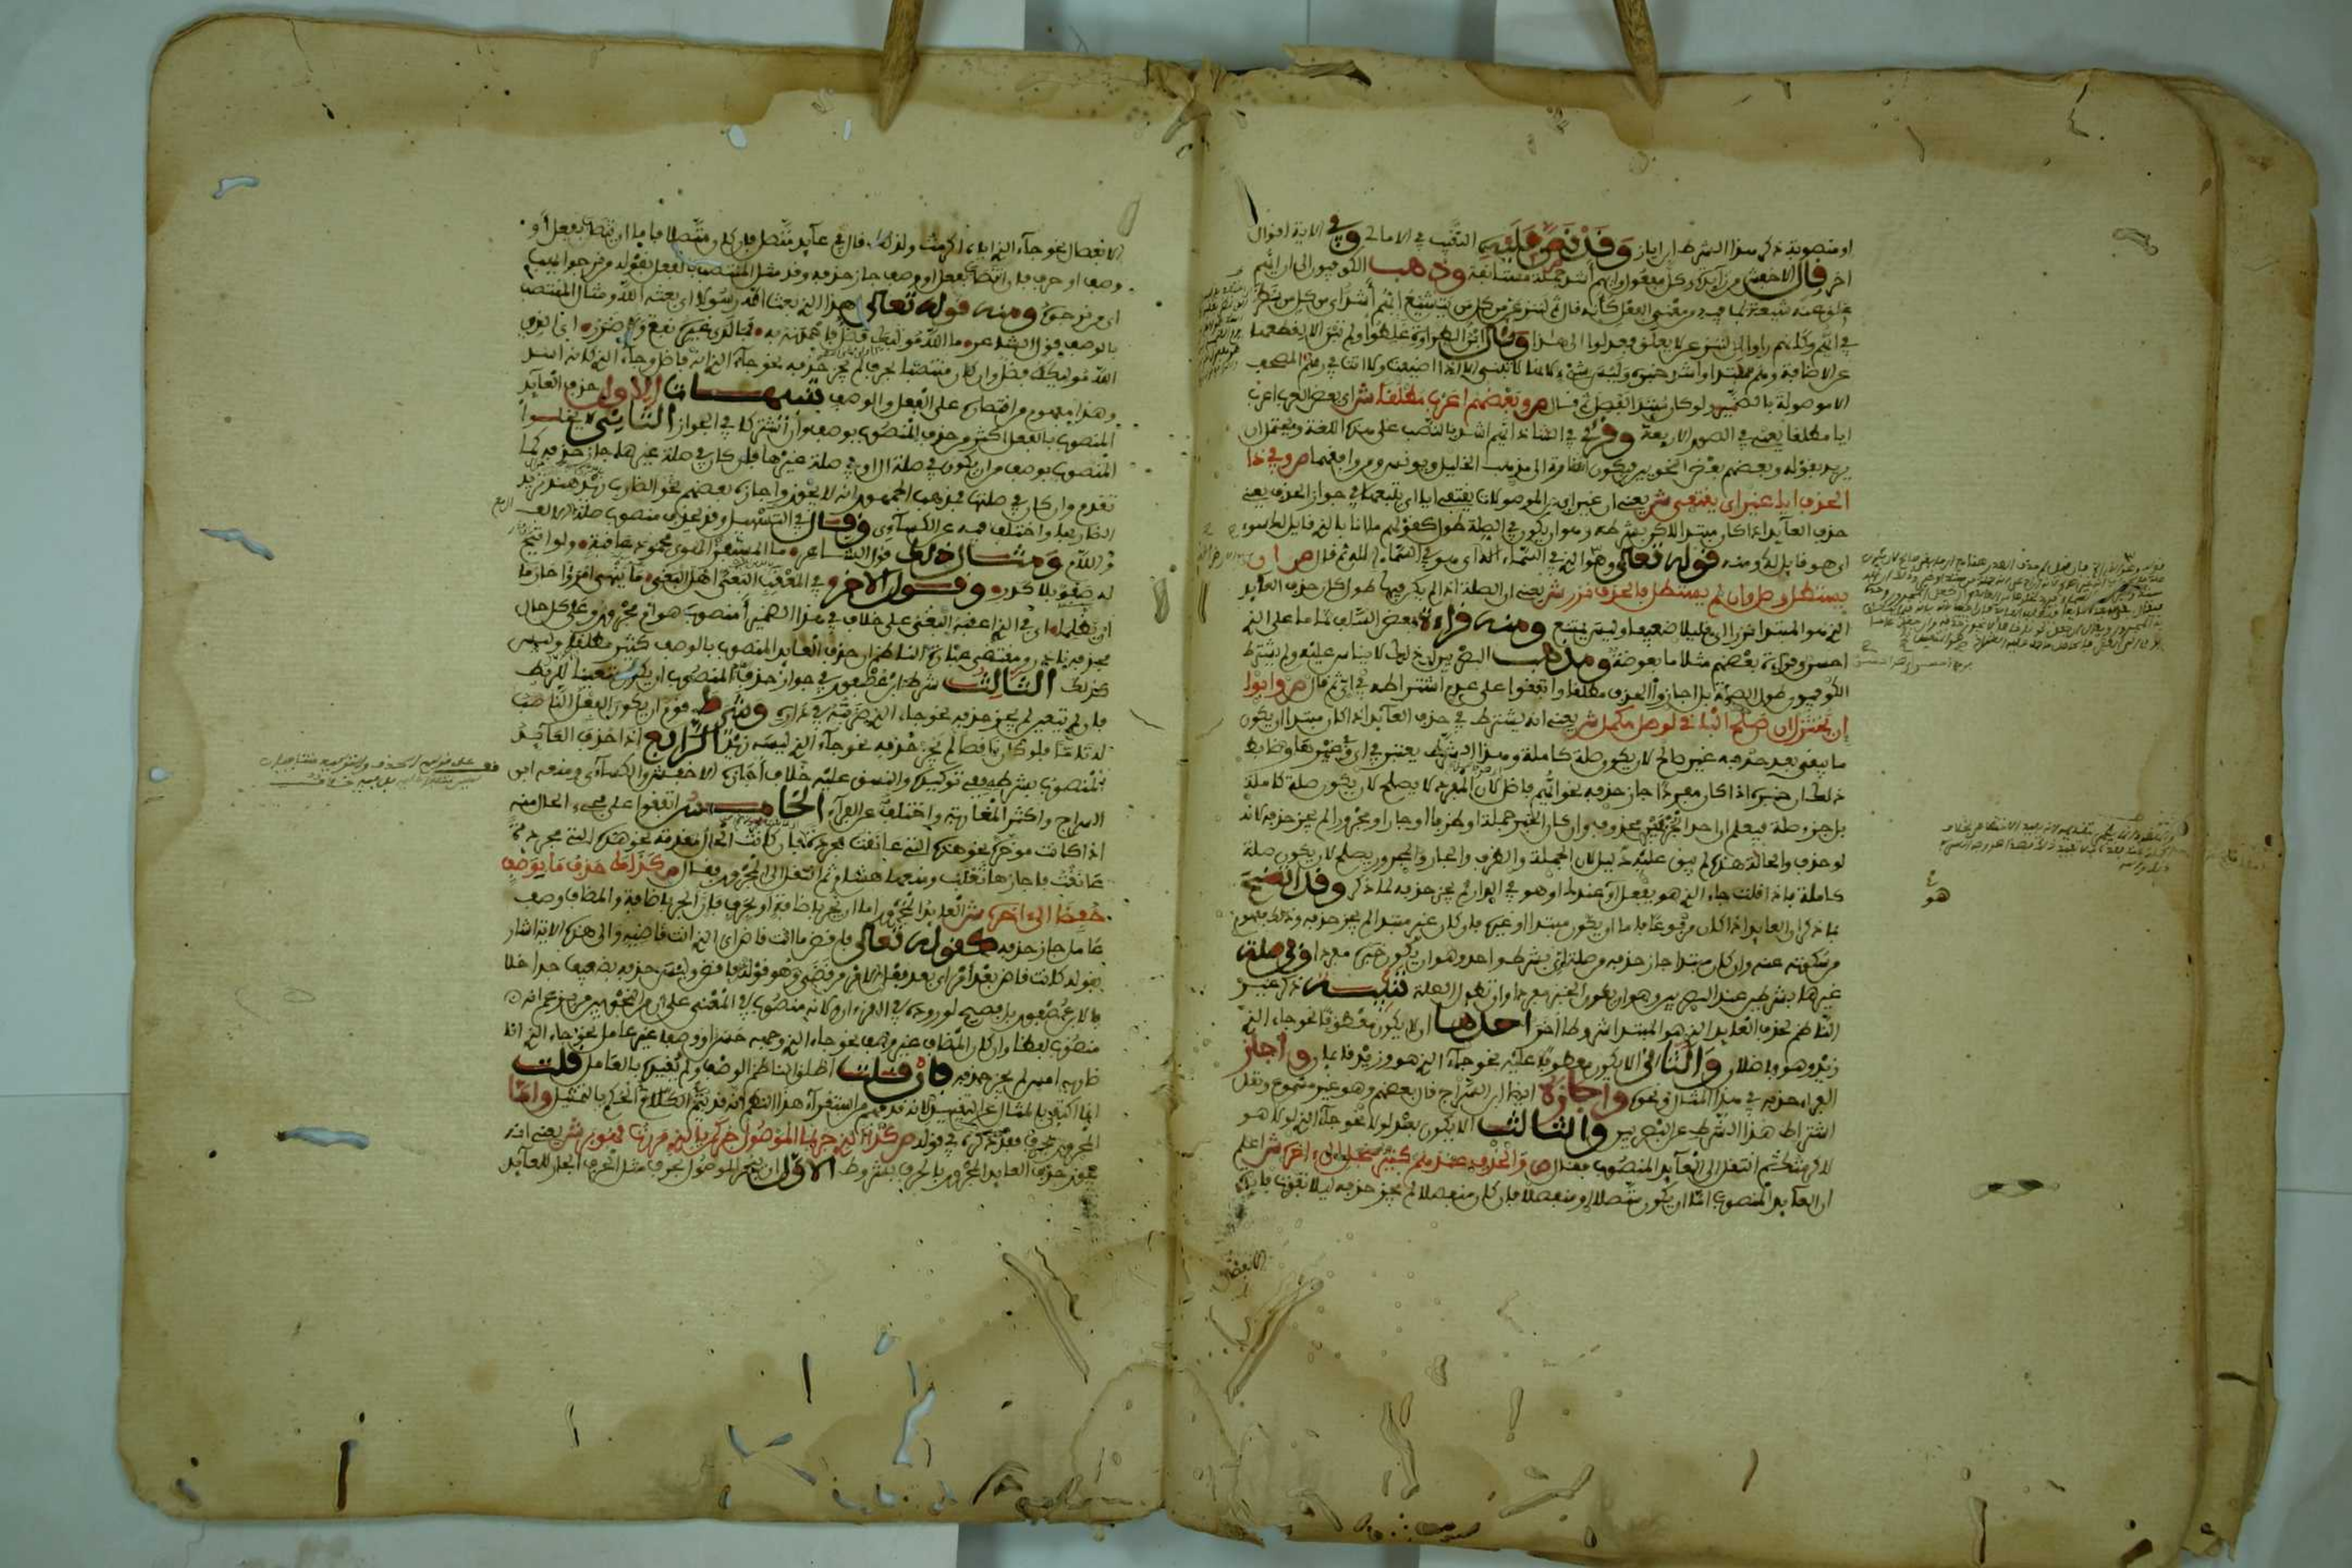 او منصوبة ذكر هذا الشرط ابن اياز وقد نص عليه النقيب في الامالي وفي الاية اقوال
اخر قال الاخفش من زايدة وكل مفعول وايهم اشد جملة مستانفة وذهب الكوفيون الى ان ايهم
علق عنه شيعة لما فيه من معنى الفعل كانه قال ثم لننزعن من كل من يتشيع ايهم اشد اي من كل من نظر
في ايهم وكانهم راوا ان لننزعن لا يعلق فعدلوا الى هذا وقال ابن الطراوة غلطوا ولم تبن الا لقطعها
عن الاضافة وهم مبتدا واشد خبره وليس بشيء لانها لا تبنى الا اذا اضيفت ولا انها في رسم المصحف
الا موصولة بالضمير لو كان مبتدا لفصل ثم قال ص وبعضهم اعرب مطلقا ش اي بعض العرب اعرب
ايا مطلقا يعني في الصور الاربعة وقرئ في الشاذ ايهم اشد بالنصب على هذه اللغة ويحتمل ان
يريد بقوله وبعضهم بعض النحويين فيكون اشارة الى مذهب الخليل ويونس ومن وافقهما ص وفي ذا
الحذف ايا غير اي يقتفي ش يعني ان غير اي من الموصولات يقتفي ايا اي يتبعها في جواز الحذف يعني
حذف العايد اذا كان مبتدا لاكن بشرطه وهو ان يكون في الصلة طول كقولهم ما انا بالذي قايل لك سوء
اي هو قايل لك ومنه قوله تعالى وهو الذي في السماء اله اي هو في السماء اله ثم قال ص ان
يستطل وصل وان لم يستطل فالحذف نزر ش يعني ان الصلة اذا لم يكن فيها طول كان حذف العايد
الذي هو المبتدا نزرا اي قليلا ضعيفا وليس بممتنع ومنه قراءة بعض السلف تماما على الذي
احسن وقراءة بعضهم مثلا ما بعوضة ومذهب البصريين ان ذلك لا يقاس عليه ولم يشترط
الكوفيون طول الصلة بل اجازوا الحذف مطلقا واتفقوا على عدم اشتراطه في اي ثم قال ص وابوا
ان يختزل ان صلح الباقي لوصل مكمل ش يعني انه يشترط في حذف العايد اذا كان مبتدا ان يكون
ما يبقى بعد حذفه غير صالح لان يكون صلة كاملة وهذا الشرط يعتبر في اي وغيرها وضابط
ذلك ان خبره اذا كان مفردا جاز حذفه نحو ايهم فاضل لان المفرد لا يصلح لان يكون صلة كاملة
بل جزء صلة فيعلم ان احد الجزءين محذوف وان كان الخبر جملة او ظرفا او جارا ومجرورا لم يجز حذفه لانه
لو حذف والحالة هذه لم يبق عليه دليل لان الجملة والظرف والجار والمجرور يصلح لان يكون صلة
كاملة فاذا قلت جاء الذي هو يفعل او عندك او هو في الدار لم يجز حذفه لما ذكر وقد اتضح
بما ذكر ان العايد اذا كان مرفوعا فاما ان يكون مبتدا او غيره فان كان غير مبتدا لم يجز حذفه وذلك مفهوم
من سكوته عنه وان كان مبتدا جاز حذفه من صلة اي بشرط واحد وهو ان يكون خبره مفردا وفي صلة
غيرها بشرطين عند البصريين وهو ان يكون الخبر مفردا وان تطول الصلة تنبيه ذكر غير
الناظم لحذف العايد الذي هو المبتدا شروطا اخر احدها ان لا يكون معطوفا نحو جاء الذي
زيد وهو فاضلان والثاني الا يكون معطوفا عليه نحو جاء الذي هو وزيد فاضلان واجاز
الفراء حذفه في هذا المثال ونحوه واجازه ايضا ابن السراج قال بعضهم وهو غير مسموع ونقل
اشتراط هذا الشرط عن البصريين والثالث الا يكون بعد لولا نحو جاء الذي لولا هو
لاكرمتك ثم انتقل الى العايد المنصوب فقال ص والحذف عندهم كثير منجلي الى اخره ش اعلم
ان العايد المنصوب اما ان يكون متصلا او منفصلا فان كان منفصلا لم يجز حذفه ليلا تفوت فايدة
الانفصال
هو
الانفصال نحو جاء الذي اياه اكرمت ولذلك قال في عايد متصل فان كان متصلا فاما ان ينتصب بفعل او
وصف او حرف فان انتصب بفعل او وصف جاز حذفه وقد مثل المنتصب بالفعل بقوله من نرجوا يهب
اي من نرجوه ومنه قوله تعالى اهذا الذي بعث الله رسولا اي بعثه الله ومثال المنتصب
بالوصف قول الشاعر ما الله موليك فضل فاحمدنه به فما لدى غيره نفع ولا ضرر اي الذي
الله موليك فضل وان كان منتصبا بحرف لم يجز حذفه نحو جاء الذي انه فاضل وجاء الذي كانه اسد
وهذا مفهوم من اقتصاره على الفعل والوصف تنبيهات الاول حذف العايد
المنصوب بالفعل اكثر من حذف المنصوب بوصف وان اشتركا في الجواز الثاني لا يخلوا
المنصوب بوصف من ان يكون في صلة ال او في صلة غيرها فان كان في صلة غيرها جاز حذفه كما
تقدم وان كان في صلتها فمذهب الجمهور انه لا يجوز واجازه بعضهم نحو الضارب زيدا هند تريد
الضاربها واختلف فيه عن الكسائي وقال في التسهيل وقد يحذف منصوب صلة الالف
واللام ومثال ذلك قول الشاعر ما المستفز الهوى محمود عاقبة ولو اتيح
له صفو بلا كدر وقول الاخر في المعقب البغي اهل البغي ما ينهى امرءا حازما
ان يسئما اي في الذي اعقبه البغي على خلاف في هذا الضمير امنصوب هو ام مجرور وعلى كل حال
فحذفه نادر ومقتضى عبارة الناظم ان حذف العايد المنصوب بالوصف كثير مطلقا وليس
كذلك الثالث شرط ابن عصفور في جواز حذف المنصوب ان يكون متعينا للربط
فان لم يتعين لم يجز حذفه نحو جاء الذي ضربته في داره وشرط قوم ان يكون الفعل الناصب
له تاما فلو كان ناقصا لم يجز حذفه نحو جاء الذي ليسه زيد الرابع اذا حذف العايد
المنصوب بشرطه ففي توكيده والنسق عليه خلاف اجازه الاخفش والكسائي ومنعه ابن
السراج واكثر المغاربة واختلف عن الفراء الخامس اتفقوا على مجيء الحال منه
اذا كانت موخرة نحو هذه التي عانقت مجردة فان كانت الحال مقدمة نحو هذه التي مجردة
عانقت فاجازها ثعلب ومنعها هشام ثم انتقل الى المجرور فقال ص كذاك حذف ما بوصف
خفضا الى اخره ش العايد المجرور اما ان يجر باضافة او بحرف فان جر باضافة والمضاف وصف
عامل جاز حذفه كقوله تعالى فاقض ما انت قاض اي الذي انت قاضيه والى هذه الاية اشار
بقوله كانت قاض بعد امر اي بعد فعل الامر من قضى وهو قوله فاقض وليس حذفه بضعيف جدا خلافا
لابن عصفور بل فصيح لوروده في القرءان ولانه منصوب في المعنى على ان من النحويين من زعم انه
منصوب لفظا وان كان المضاف غير وصف نحو جاء الذي وجهه حسن او وصفا غير عامل نحو جاء الذي انا
ضاربه امس لم يجز حذفه فان قلت اطلق الناظم الوصف ولم يقيده بالعامل قلت
انما اكتفى بالمثال عن التقييد لانه قد فهم من استقراء هذا النظم انه قد يتمم الكلام الحكم بالتمثيل واما
المجرور بحرف فقد ذكره في قوله ص كذا الذي جر بما الموصول جر كمر بالذي مررت فهو بر ش يعني انه
يجوز حذف العايد المجرور بالحرف بشروط الاول ان ينجر الموصول بحرف مثل الحرف الجار للعايد